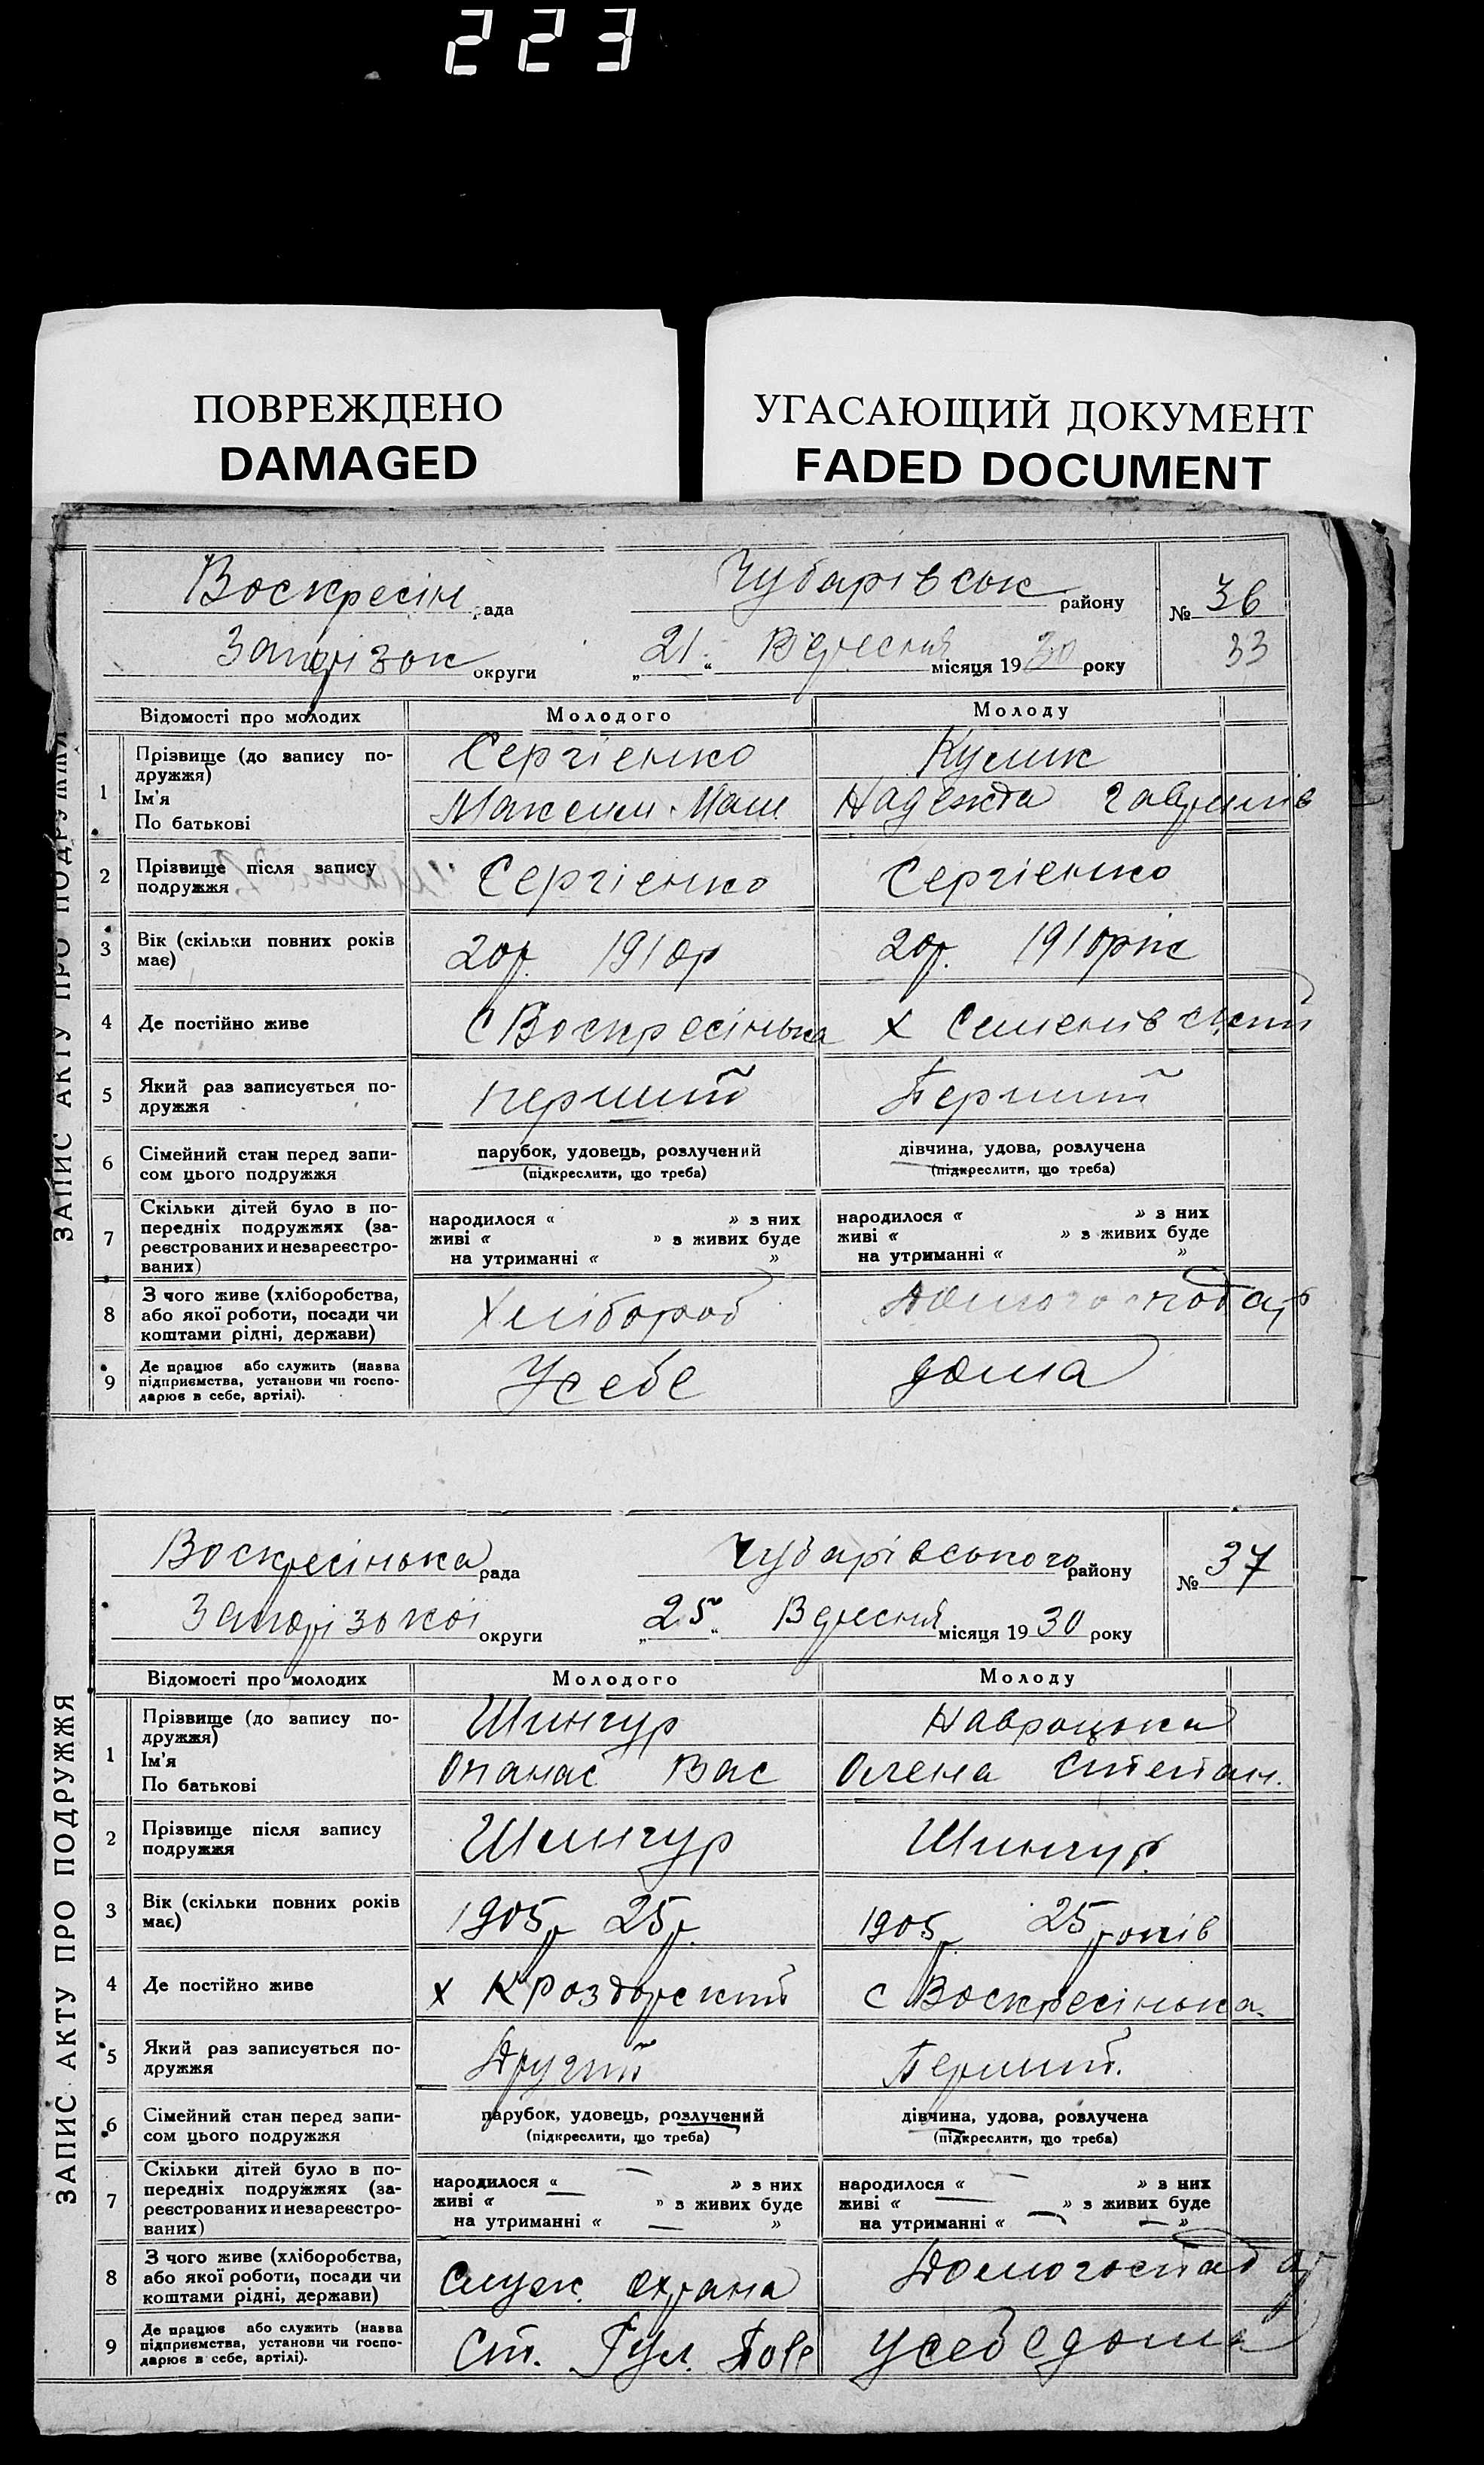 223
ПОВРЕЖДЕНО
DAMAGED
УГАСАЮЩИЙ ДОКУМЕНТ
FADED DOCUMENT
ЗАПИС АКТУ ПРО ПОДРУЖЖЯ
Воскресін рада Чубарівськ району № 36
Запоріжж округи „21“ Вересня місяця 1930 року 33
Відомості про молодих Молодого Молоду
1 Прізвище (до запису по-
дружжя)
Ім'я
По батькові
Сергієнко Кулик
Максим Надежда Гаврилів
2 Прізвище після запису
подружжя
Сергієнко Сергієнко
3 Вік (скільки повних років
має)
20р. 1910р 20р. 1910рік
4 Де постійно живе С Воскресінька Х Семенівський
5 Який раз записується по-
дружжя
перший Перший
6 Сімейний стан перед запи-
сом цього подружжя
парубок, удовець, розлучений
(підкреслити, що треба)
дівчина, удова, розлучена
(підкреслити, що треба)
7 Скільки дітей було в по-
передніх подружжях (за-
реєстрованих и незареєстро-
ваних)
народилося « » з них
живі « » з живих буде
на утриманні « »
народилося « » з них
живі « » з живих буде
на утриманні « »
8 З чого живе (хліборобства,
або якої роботи, посади чи
коштами рідні, держави)
Хлібороб Домогосподар
9 Де працює або служить (назва
підприємства, установи чи госпо-
дарює в себе, артілі).
Усебе дома
ЗАПИС АКТУ ПРО ПОДРУЖЖЯ
Воскресінька рада Чубарівського району № 37
Запорізької округи „25“ Вересня місяця 1930 року
Відомості про молодих Молодого Молоду
1 Прізвище (до запису по-
дружжя)
Ім'я
По батькові
Шингур Навроцька
Опанас Вас Олена Степан.
2 Прізвище після запису
подружжя
Шингур Шингур.
3 Вік (скільки повних років
має)
1905р 25р. 1905р 25 років
4 Де постійно живе х с Воскресінька
5 Який раз записується по-
дружжя
Другий Перший.
6 Сімейний стан перед запи-
сом цього подружжя
парубок, удовець, розлучений
(підкреслити, що треба)
дівчина, удова, розлучена
(підкреслити, що треба)
7 Скільки дітей було в по-
передніх подружжях (за-
реєстрованих и незареєстро-
ваних)
народилося « — » з них
живі « » з живих буде
на утриманні « — »
народилося « — » з них
живі « — » з живих буде
на утриманні « — »
8 З чого живе (хліборобства,
або якої роботи, посади чи
коштами рідні, держави)
Служ. охрана Домогосподар
9 Де працює або служить (назва
підприємства, установи чи госпо-
дарює в себе, артілі).
Ст. Гул. Поле усебе дома